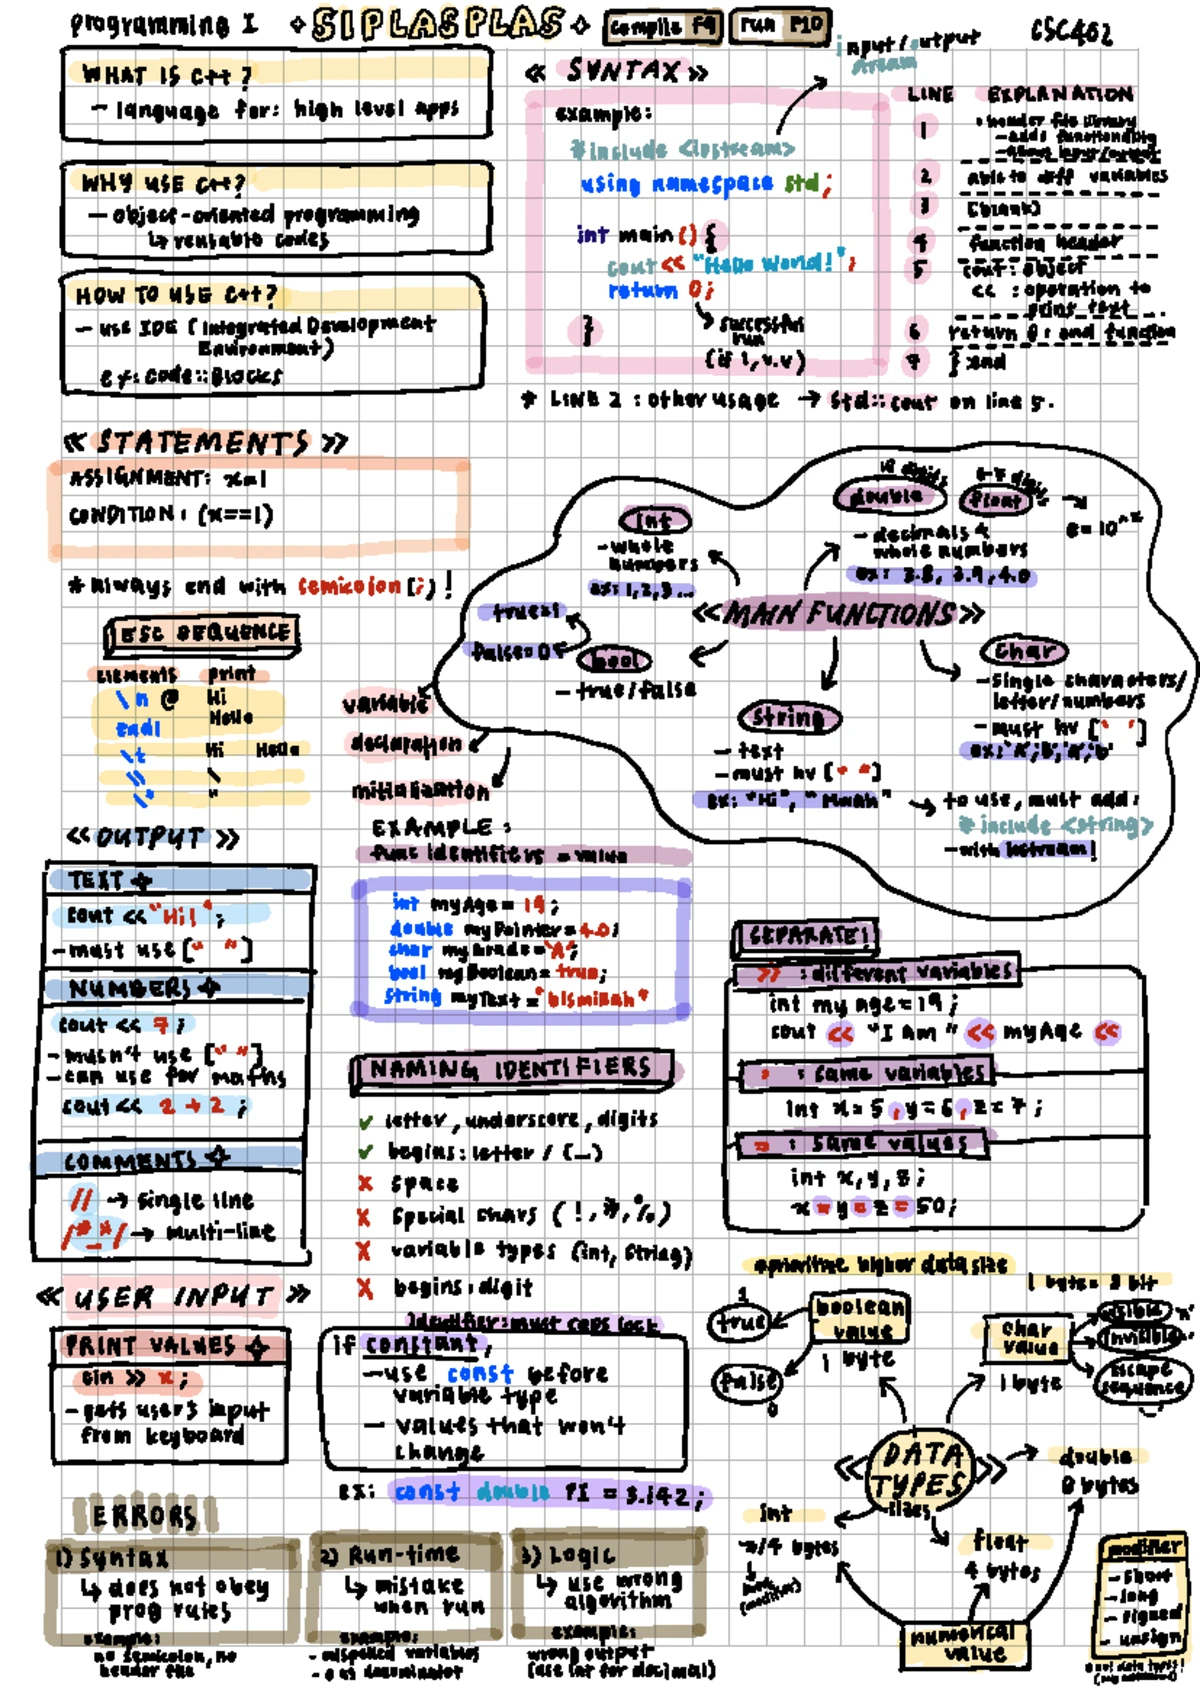 programming I
SIPLASPLAS
compile F9
run F10
CSC402
WHAT IS C++ ?
- language for: high level apps
WHY USE C++?
- object-oriented programming
↳ reusable codes
HOW TO USE C++?
- use IDE (Integrated Development
Environment)
ex: Code::Blocks
« SYNTAX »
input/output
stream
example:
#include <iostream>
using namespace std;
int main () {
cout << "Hello World!";
return 0;
}
↳ successful
run
(if 1, v.v)
LINE EXPLANATION
1 • header file library
- adds functionality
- about input/output
2 able to diff variables
3 (blank)
4 function header
5 cout : object
<< : operation to
print text
6 return 0 : end function
7 } : end
* LINE 2 : other usage → std::cout on line 5.
« STATEMENTS »
ASSIGNMENT: x=1
CONDITION: (x==1)
* always end with semicolon [;] !
ESC SEQUENCE
elements print
\n @ Hi
endl Hello
\t Hi Hello
\\ \
\" "
«MAIN FUNCTIONS»
int
- whole
numbers
ex: 1,2,3...
double
float
6-7 digits
→ e = 10^x
- decimals &
whole numbers
ex: 3.8, 3.9, 4.0
bool
true=1
false=0
- true/false
string
- text
- must hv [" "]
ex: "Hi", "Mwah"
→ to use, must add:
# include <string>
- with iostream!
char
- single characters/
letter/numbers
- must hv [' ']
variable
declaration
initialization
EXAMPLE:
func identifiers = value
int myAge = 19;
double myPointer = 4.0;
char myGrade = 'A';
bool myBoolean = true;
string myText = "bismillah"
«OUTPUT»
TEXT
cout << "Hi!";
- must use [" "]
NUMBERS
cout << 7;
- musn't use [" "]
- can use for maths
cout << 2 + 2;
COMMENTS
// → single line
/*_*/ → multi-line
NAMING IDENTIFIERS
✓ letter, underscore, digits
✓ begins: letter / (_)
x space
x special chars (!, #, %)
x variable types (int, string)
x begins: digit
SEPARATE!
>> : different variables
int my age = 19;
cout << "I Am " << myAge <<
, : same variables
int x=5, y=6, z=7;
= : same values
int x, y, z;
x = y = z = 50;
« USER INPUT »
PRINT VALUES
cin >> x;
- gets users input
from keyboard
Identifier: must caps lock
if constant,
- use const before
variable type
- values that won't
change
ex: const double PI = 3.142;
ERRORS
1) Syntax
↳ does not obey
prog rules
example:
no semicolon, no
header file
2) Run-time
↳ mistake
when run
example:
- mispelled variables
- 0 as denominator
3) Logic
↳ use wrong
algorithm
example:
wrong output
(use int for decimal)
«DATA
TYPES»
sizes
*primitive higher data size
1 byte = 8 bit
boolean
value
1 byte
1
true
false
0
char
value
1 byte
visible
invisible
escape
sequence
double
8 bytes
float
4 bytes
int
numerical
value
modifier
- short
- long
- signed
- unsign